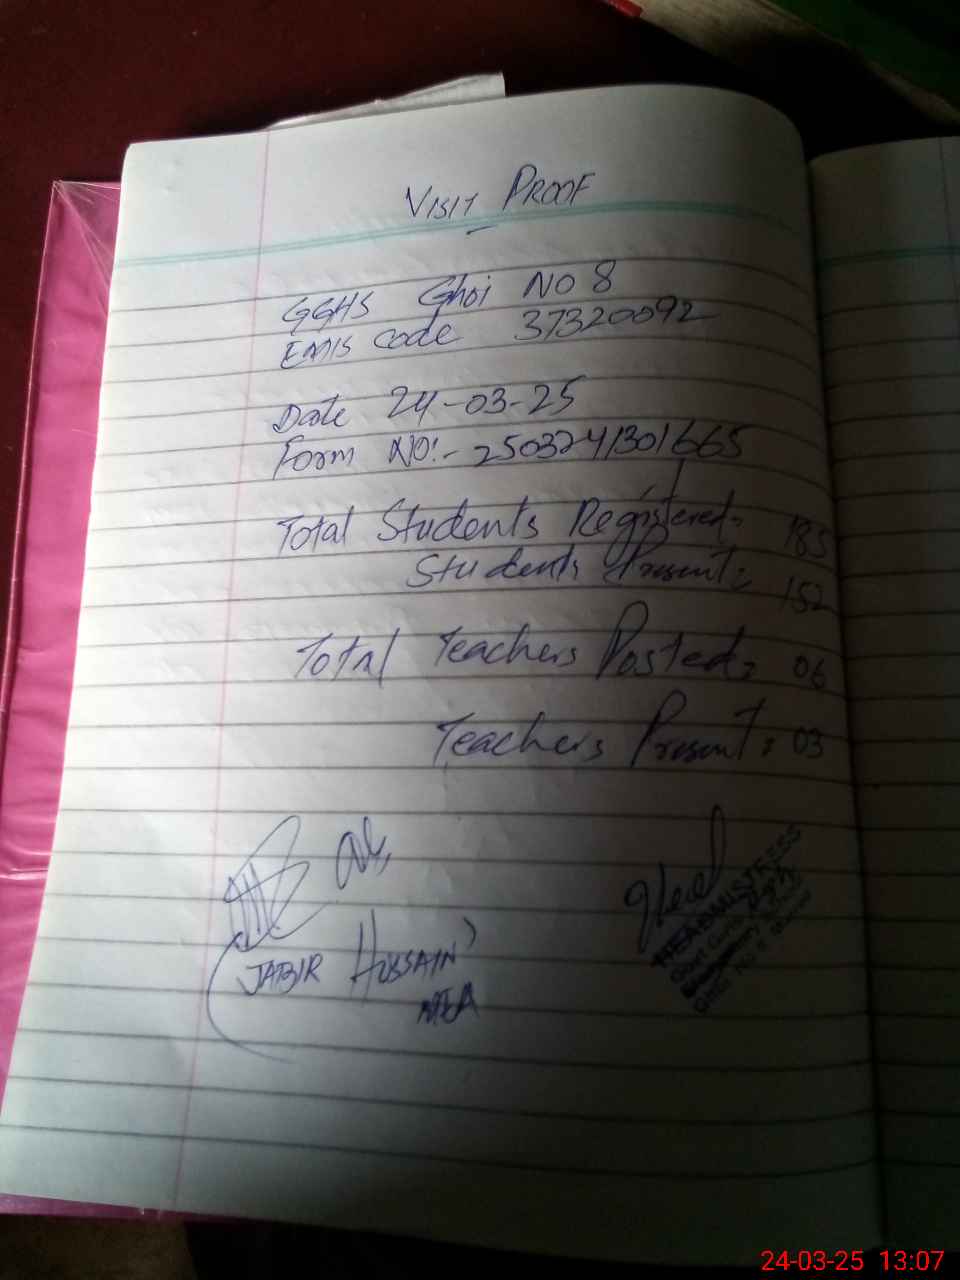 VISIT PROOF
GGHS Ghoi NO 8
EMIS code 37320092
Date 24-03-25
Form NO:- 2503241301665
Total Students Registered= 185
Students Present= 152
Total Teachers Posted= 06
Teachers Present= 03
JABIR HUSSAIN
MEA
HEADMISTRESS
Govt Girls High
24-03-25 13:07